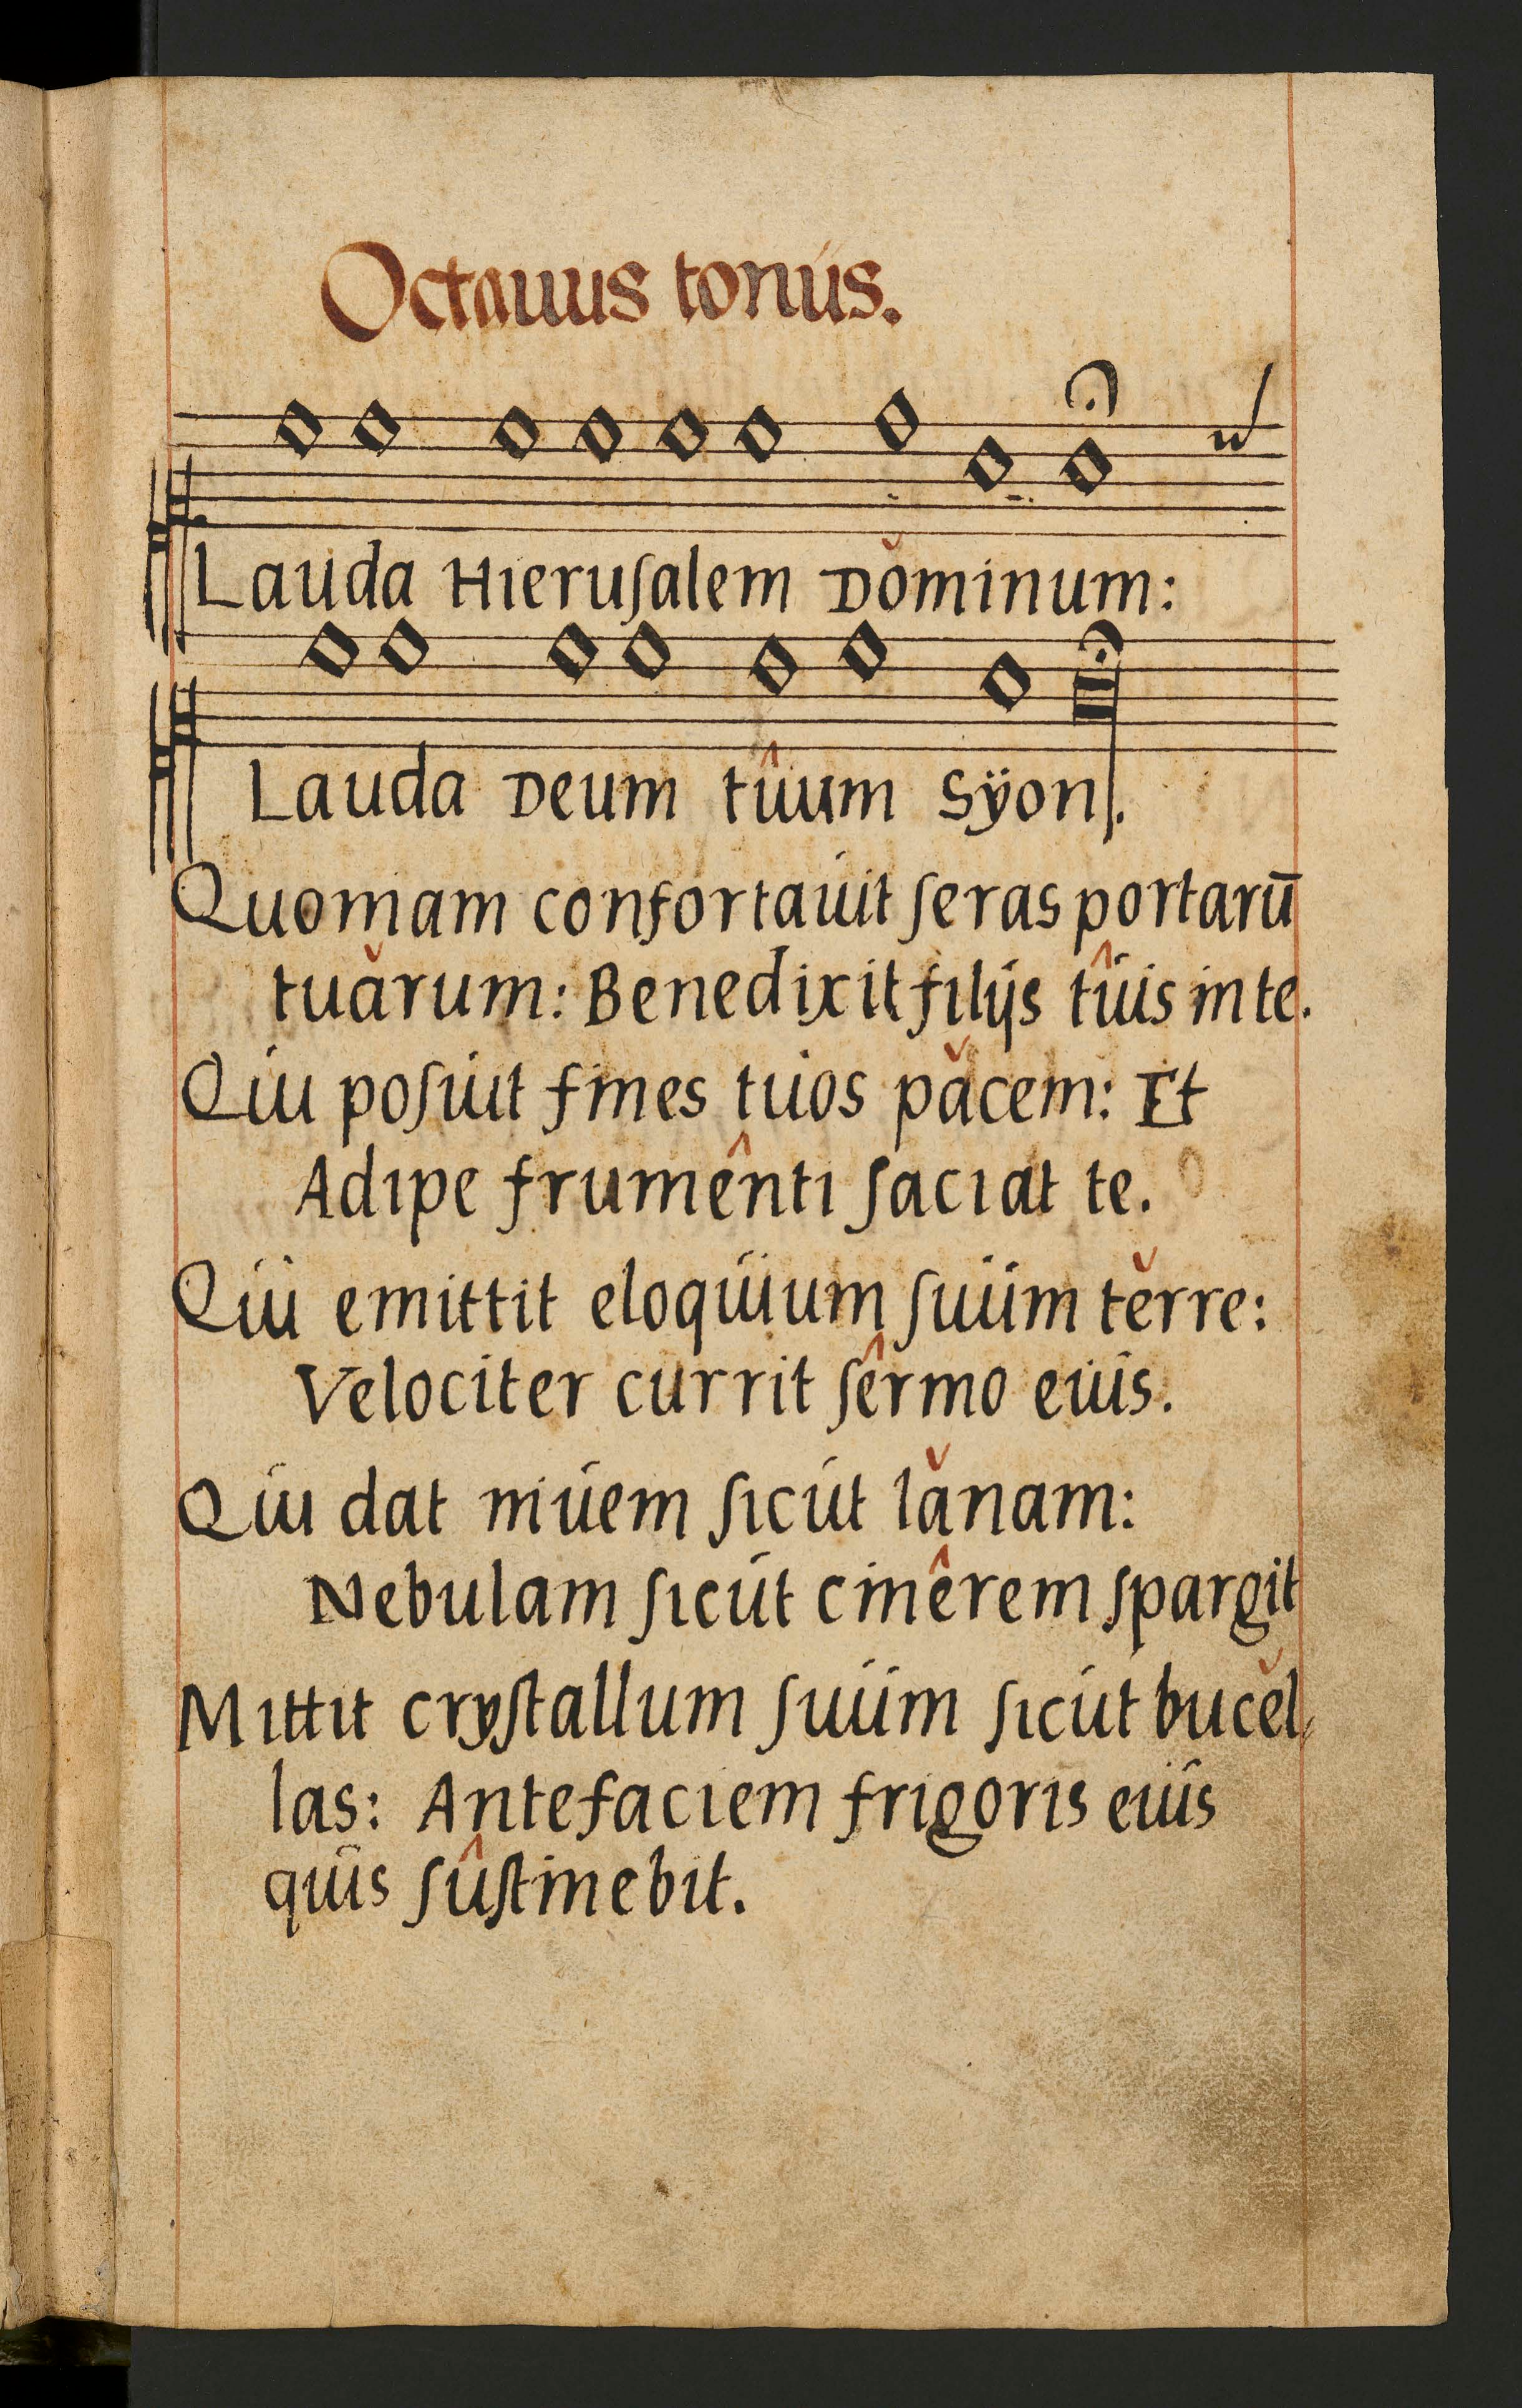 Octauus tonus.
Lauda Hieruſalem Dǒminum:
Lauda Deum tûum Sÿon.
Quoniam confortauit ſeras portarū
tuǎrum: Benedixit filijs tûis in te.
Qui poſuit fines tuos pǎcem: Et
Adipe frumênti ſaciat te.
Qui emittit eloquium ſuum těrre:
Velociter currit ſêrmo eius.
Qui dat niuem ſicut lǎnam:
Nebulam ſicut cinêrem ſpargit
Mittit cryſtallum ſuum ſicut bucěl,
las: Ante faciem frigoris eius
quis ſûſtinebit.